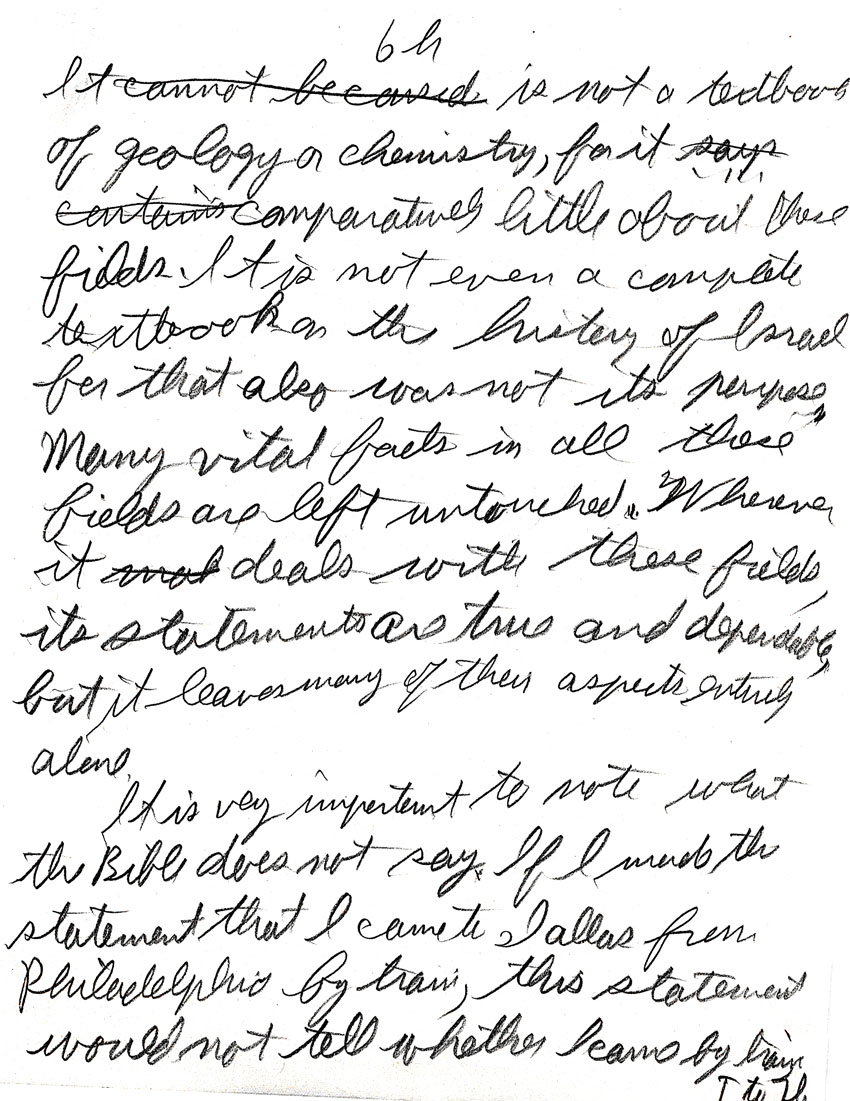 6h
It cannot be caused is not a textbook
of geology or chemistry, for it says
contains comparatively little about these
fields. It is not even a complete
textbook on the history of Israel
for that also was not its purpose.
Many vital facts in all these
fields are left untouched. Wherever
it deals with these fields,
its statements are true and dependable,
but it leaves many of their aspects entirely
alone.
It is very important to note what
the Bible does not say. If I made the
statement that I came to Dallas from
Philadelphia by train, this statement
would not tell whether I came by train